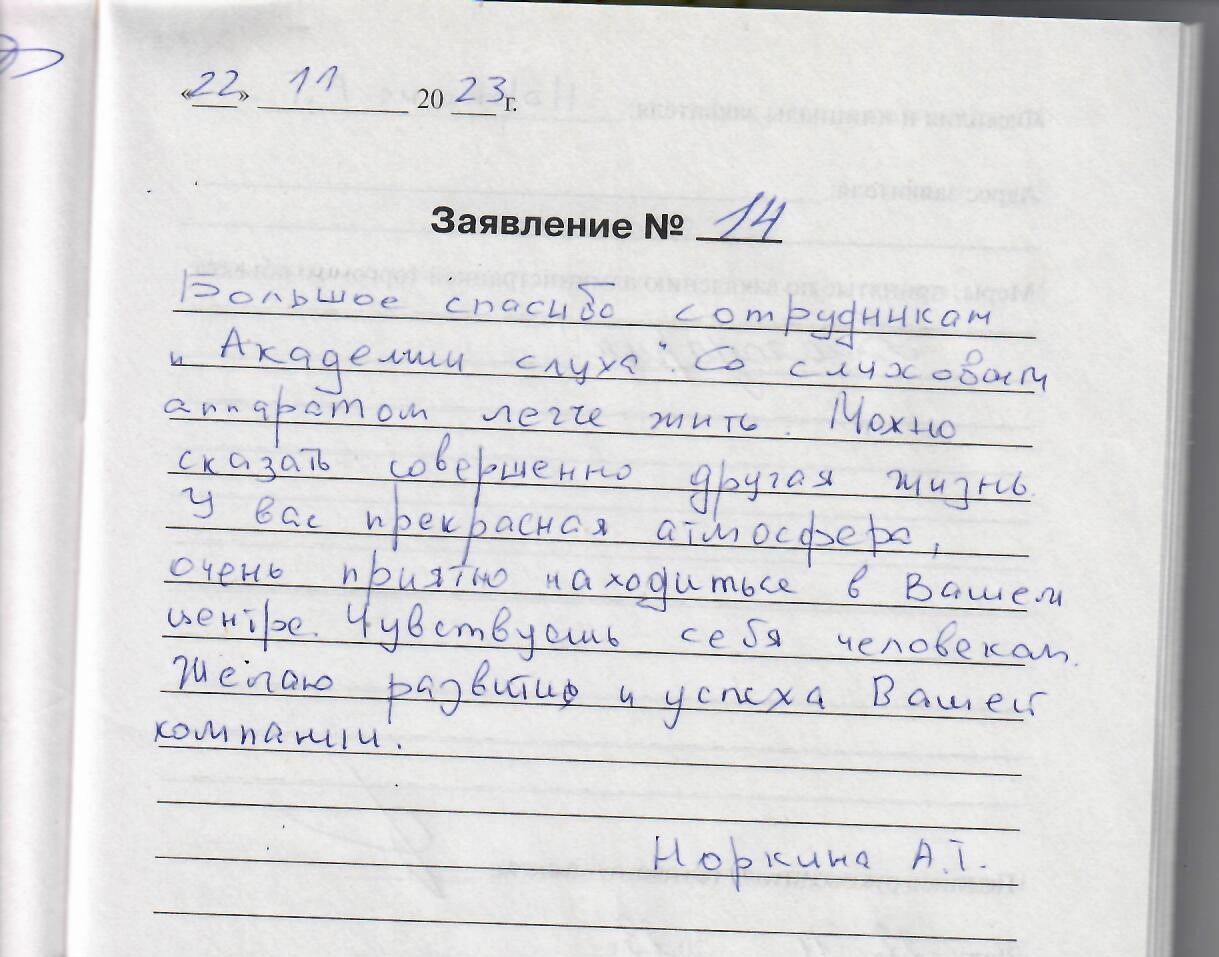 «22» 11 2023 г.
Заявление № 14
Большое спасибо сотрудникам
„Академии слуха". Со слуховым
аппаратом легче жить. Можно
сказать совершенно другая жизнь.
У вас прекрасная атмосфера,
очень приятно находиться в Вашем
центре. Чувствуешь себя человеком.
Желаю развития и успеха Вашей
компании.
Норкина А.Т.